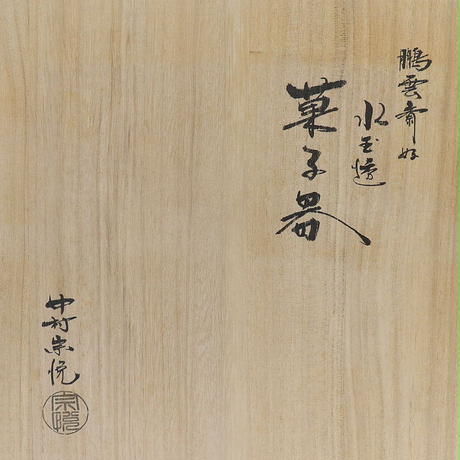 鵬雲斎好
水玉透
菓子器
中村宗悦
宗悦